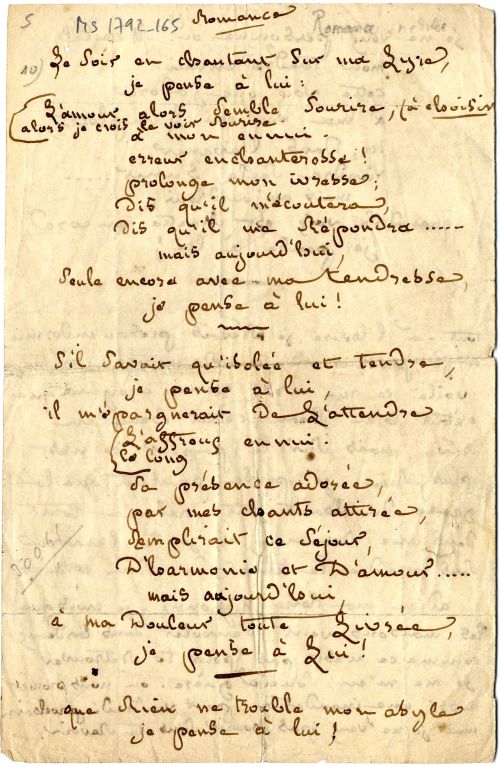 5 MS 1792-165 Romance Romance
10)
Le Soir en chantant Sur ma Lyre,
je pense à lui:
L'amour alors Semble Sourire, (à choisir
alors je crois le voir Sourire
à mon ennui.
erreur enchanteresse!
prolonge mon ivresse;
Dis qu'il m'écoutera,
Dis qu'il me Répondra .....
mais aujourd'hui,
Seule encore avec ma tendresse,
je pense à lui!
S'il Savait qu'isolée et tendre,
je pense à lui,
il m'épargnerait De L'attendre
L'affreux ennui:
Le long
Sa présence adorée,
par mes chants attirée,
Remplirait ce Séjour,
D'harmonie et D'amour .....
mais aujourd'hui,
à ma Douleur toute Livrée,
je pense à Lui!
que Rien ne trouble mon asyle
je pense à lui!